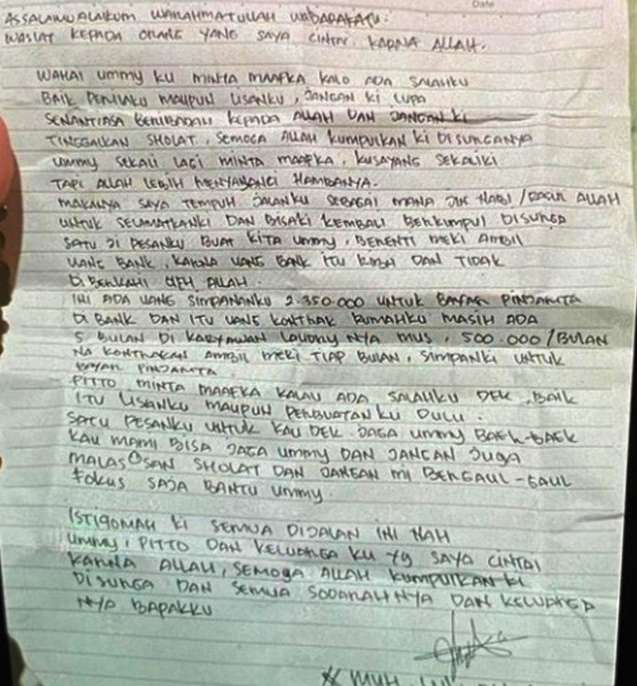 Date
ASSALAMUALAIKUM WARAHMATULLAH WABARAKATU.
WASIAT KEPADA ORANG YANG SAYA CINTAI KARNA ALLAH.
WAHAI UMMY KU MINTA MAAFKA KALO ADA SALAHKU
BAIK PERILAKU MAUPUN LISANKU, JANGAN KI LUPA
SENANTIASA BERIBADAH KEPADA ALLAH DAN JANGAN KI
TINGGALKAN SHOLAT, SEMOGA ALLAH KUMPULKAN KI DISURGANYA
UMMY SEKALI LAGI MINTA MAAFKA, KUSAYANG SEKALIKI
TAPI ALLAH LEBIH MENYAYANGI HAMBANYA.
MAKANYA SAYA TEMPUH JALANKU SEBAGAI MANA JLN NABI / RASUL ALLAH
UNTUK SELAMATKANKI DAN BISAKI KEMBALI BERKUMPUL DISURGA
SATU JI PESANKU BUAT KITA UMMY, BERENTI MEKI AMBIL
UANG BANK, KARNA UANG BANK ITU RIBA DAN TIDAK
DI BERKAHI OLEH ALLAH.
INI ADA UANG SIMPANANKU 2.350.000 UNTUK BAYAR PINJAMTA
DI BANK DAN ITU UANG KONTRAK RUMAHKU MASIH ADA
5 BULAN DI KARYAWAN LAUNDRY NYA MUS, 500.000/BULAN
NA KONTRAKAN AMBIL MEKI TIAP BULAN, SIMPANKI UNTUK
BAYAR PINJAMTA.
PITTO MINTA MAAFKA KALAU ADA SALAHKU DEK, BAIK
ITU LISANKU MAUPUN PERBUATAN KU DULU.
SATU PESANKU UNTUK KAU DEK JAGA UMMY BAEK-BAEK
KAU MAMI BISA JAGA UMMY DAN JANGAN JUGA
MALAS-SAN SHOLAT DAN JANGAN MI BERGAUL-GAUL
FOKUS SAJA BANTU UMMY
ISTIQOMAH KI SEMUA DIJALAN INI NAH
UMMY, PITTO DAN KELUARGA KU YG SAYA CINTAI
KARNA ALLAH, SEMOGA ALLAH KUMPULKAN KI
DISURGA DAN SEMUA SODARAH NYA DAN KELUARGA
NYA BAPAKKU
MUH.